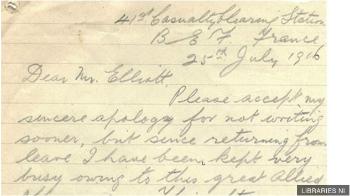 41st Casualty Clearing Station
B E F France
25th July 1916
Dear Mr. Elliott.
Please accept my
sincere apology for not writing
sooner, but since returning from
leave I have been kept very
busy owing to this great Allied
LIBRARIES NI